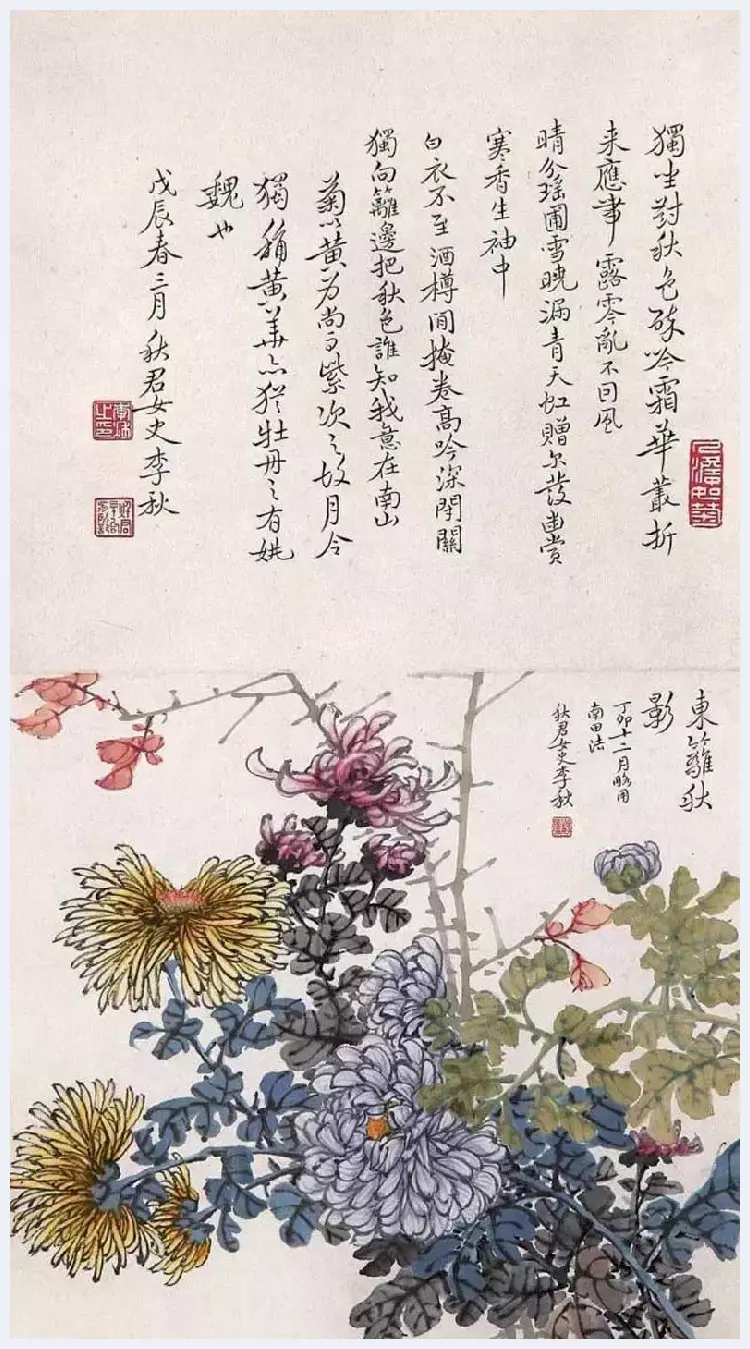 獨坐對秋色吟霜華叢折
来應帶露零亂不回風
晴分瑤圃雪晓漏青天虹贈尔發幽賞
寒香生袖中
白衣不至酒樽閒掩卷高吟深閉關
獨向籬邊把秋色誰知我意在南山
菊以黄为尚而紫次之故月令
獨稱黄華亦猶牡丹之有姚
魏也
戊辰春三月秋君女史李秋
東籬秋
影
丁卯十二月略用
南田法
秋君女史李秋